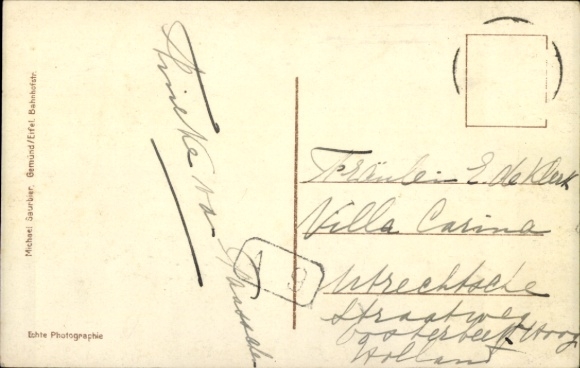 Michael Gaurbier, Gemünd/Eifel, Bahnhofstr.
Echte Photographie
Fräulein E. de Klerk
Villa Carina
Utrechtsche
Straatweg
Oosterbeek Hoog
Holland